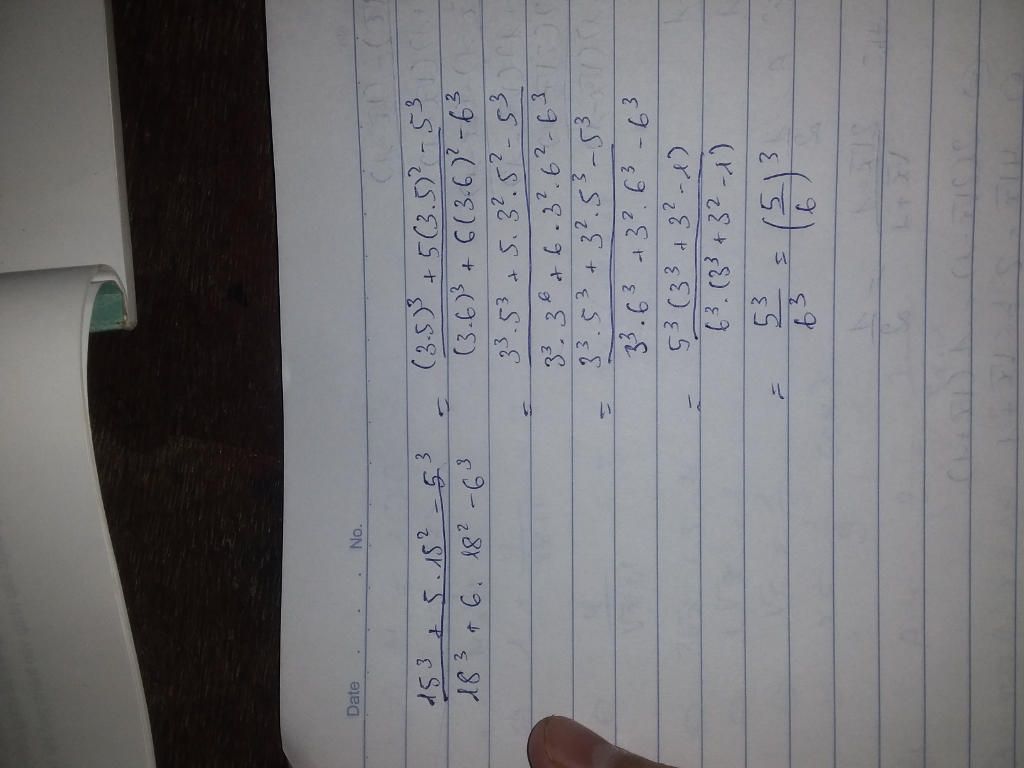 Date No.
15³ + 5.15² - 5³ = (3.5)³ + 5(3.5)² - 5³
18³ + 6. 18² - 6³ (3.6)³ + 6(3.6)² - 6³
= 3³.5³ + 5.3².5² - 5³
3³.3⁶ + 6.3².6² - 6³
= 3³.5³ + 3².5³ - 5³
3³.6³ + 3².6³ - 6³
= 5³(3³ + 3² - 1)
6³.(3³ + 3² - 1)
= 5³ = (5)³
6³ (6)